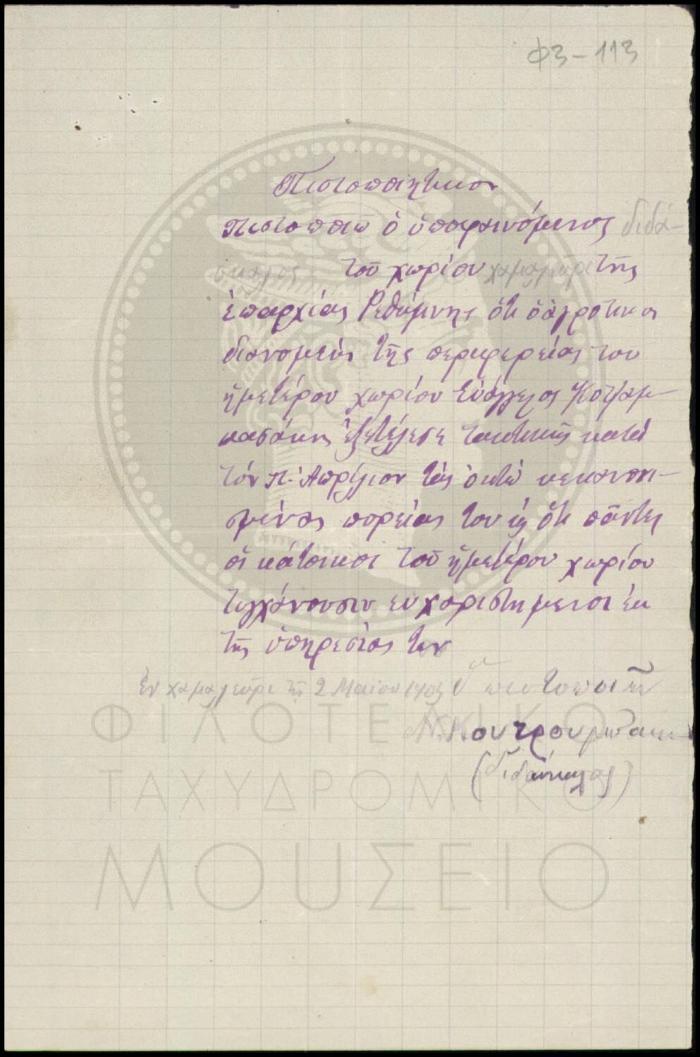 ΦЗ-113
Πιστοποιητικον
Πιστοποιῶ ὁ ὑποφαινόμενος διδά-
σκαλος τοῦ χωρίου χαμαλευρι τῆς
ἐπαρχίας Ρεθύμνης ὅτι ὁ ἀγροτικος
διανομεὺς τῆς περιφερείας του
ἡμετέρου χωρίου Εὐάγγελος Κοτζαμ-
πασάκης ἐξετέλεσε τακτικῆς κατὰ
τὸν π. Ἀπρίλιον τὰς ὀκτὼ κεκανονι-
σμένας πορείας του κ ὅτι πάντες
οἱ κάτοικοι τοῦ ἡμετέρου χωρίου
τυγχάνουσιν ευχαριστημενοι ἐκ
τῆς ὑπηρεσίας των
Ἐν χαμαλευρι τῇ 2 Μαιου 1905 Ὁ πιστοποιῶν
Ν. Κουτρουμπάκης
(διδάσκαλος)
ΦΙΛΟΤΕΛΙΚΟ
ΤΑΧΥΔΡΟΜΙΚΟ
ΜΟΥΣΕΙΟ